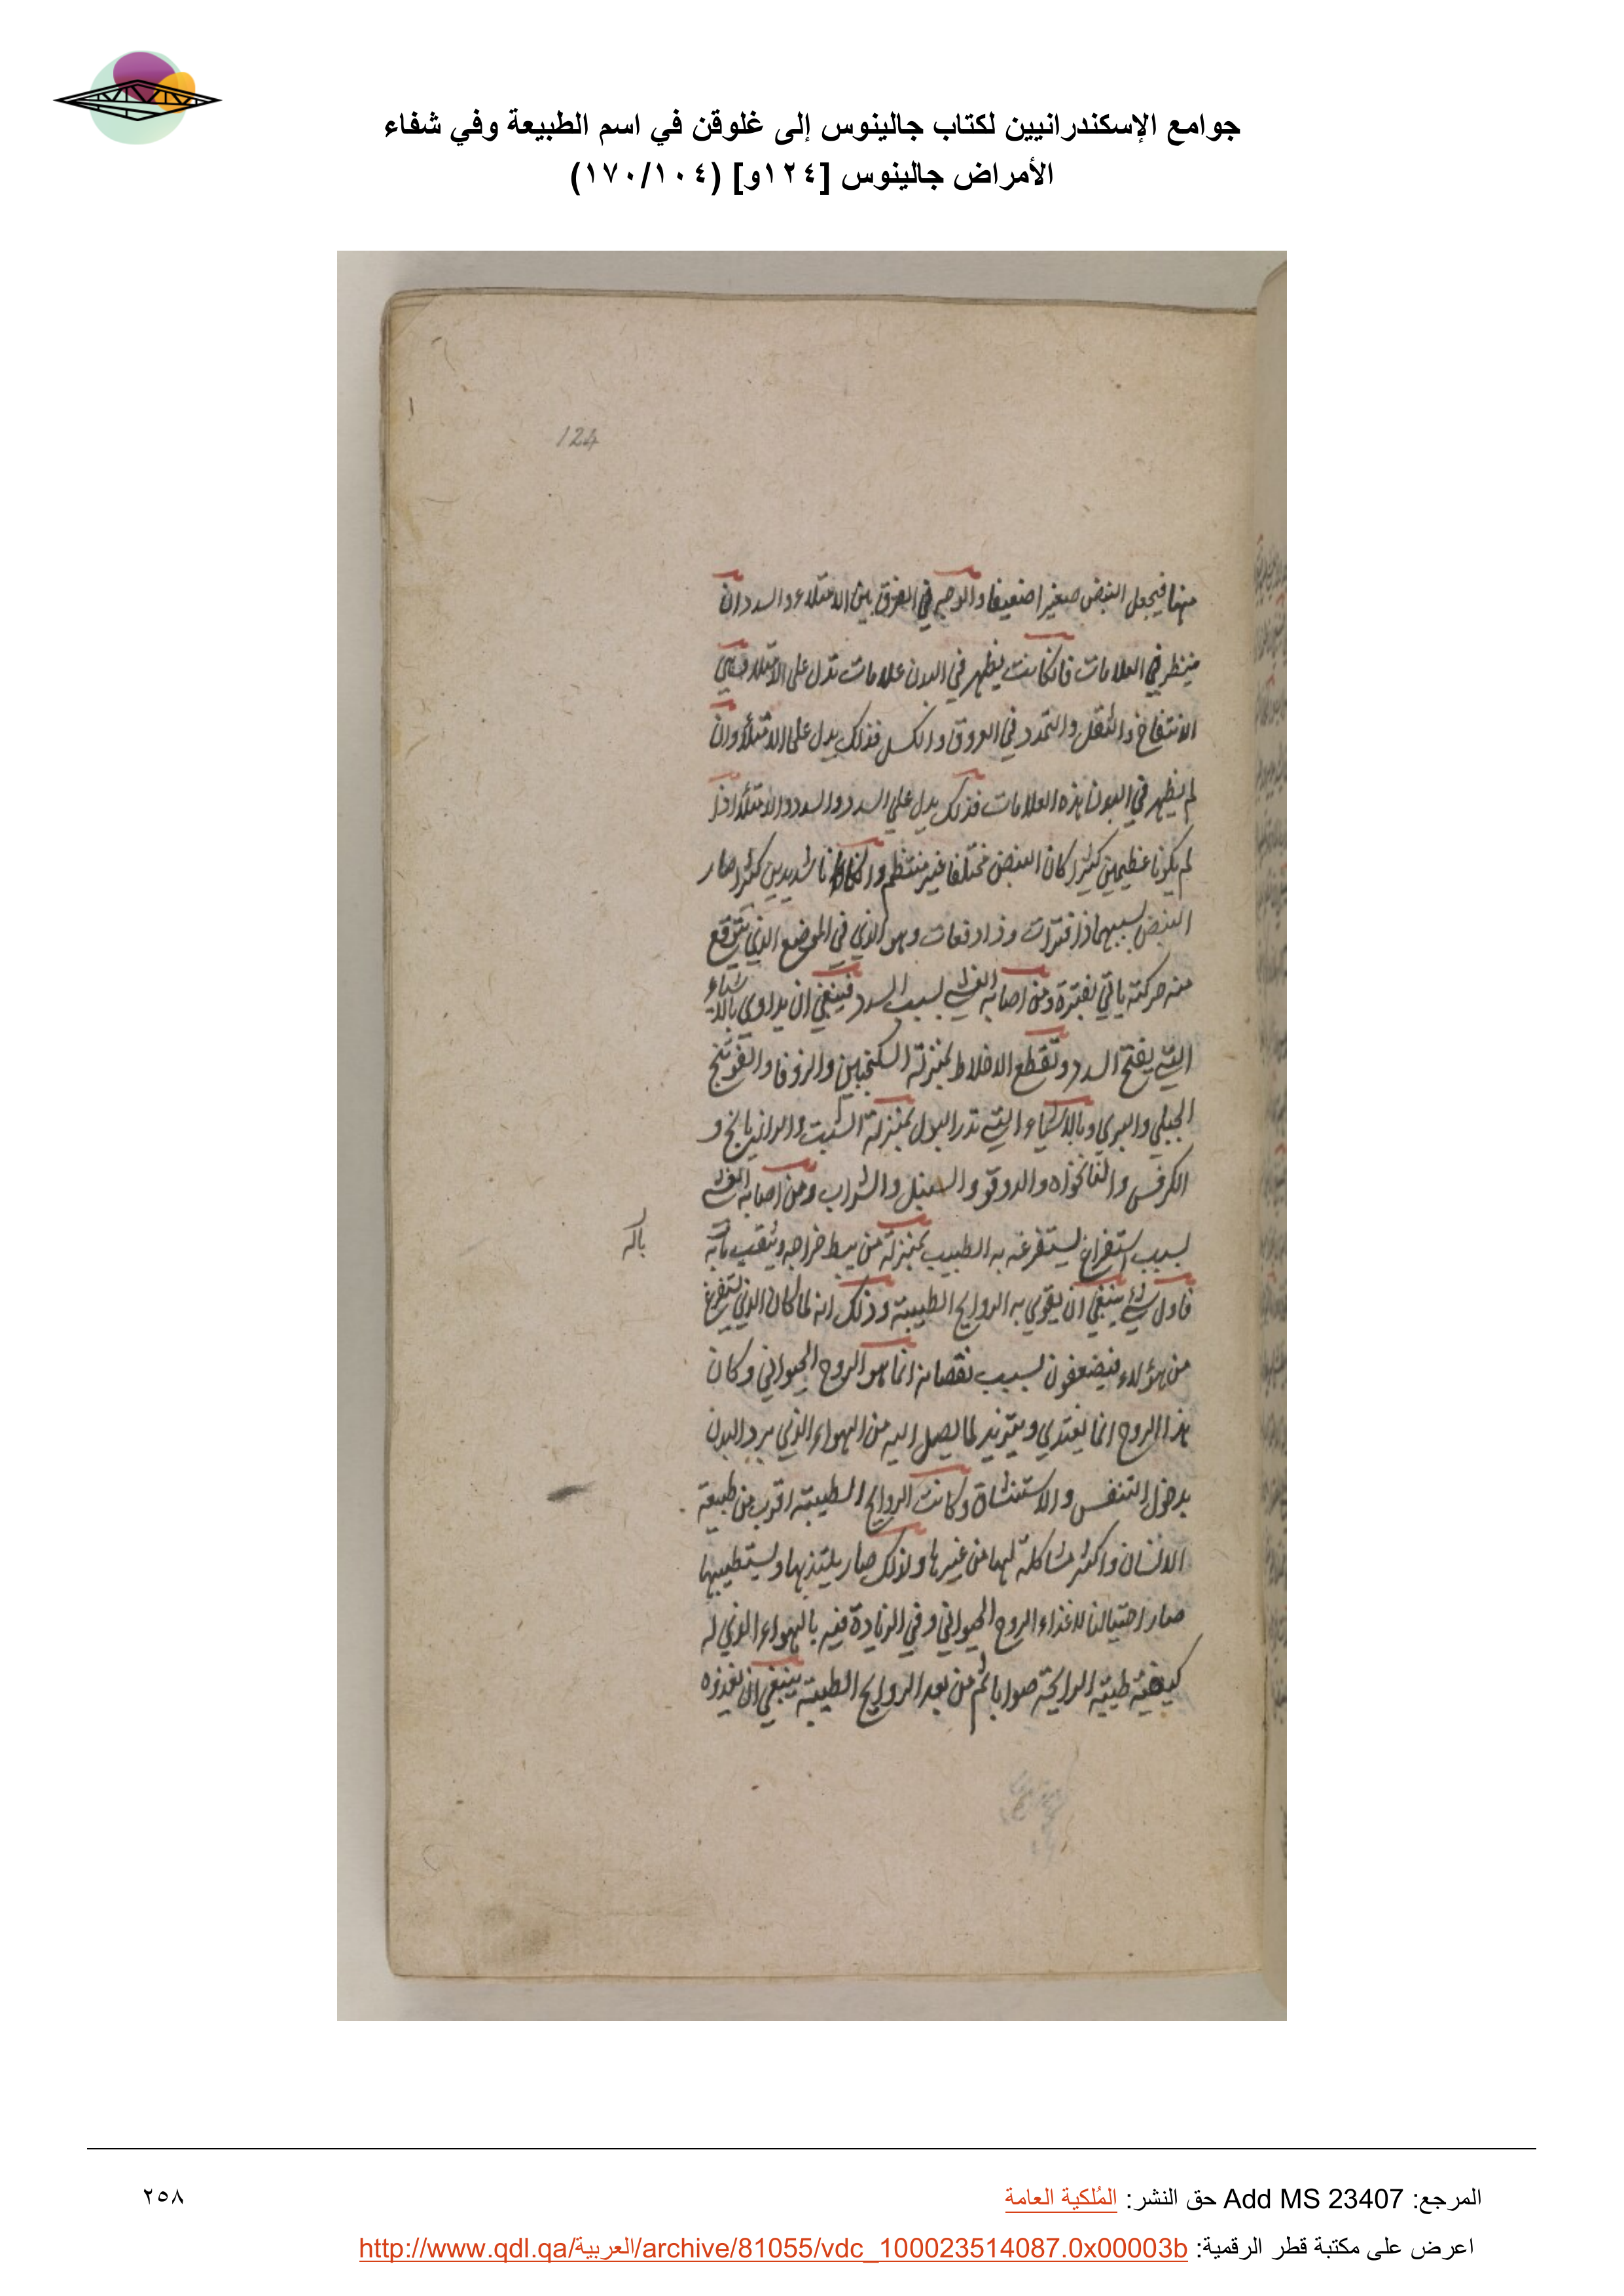 جوامع الإسكندرانيين لكتاب جالينوس إلى غلوقن في اسم الطبيعة وفي شفاء
الأمراض جالينوس [١٢٤و] (١٧٠/١٠٤)
124
منها فيجعل النبض صغيرا ضعيفا والوجه في الفرق بين الامتلاء والسدد ان
ينظر في العلامات فان كانت يظهر في البدن علامات تدل على الامتلاء وهي
الانتفاخ والثقل والتمدد في العروق والكسل فذلك يدل على الامتلاء وان
لم يظهر في البدن هذه العلامات فذلك يدل علي السدد والسدد والامتلاء اذا
لم يكونا عظيمين كثيرا كان النبض مختلفا غير منتظم وان كانا شديدين كثيرا صار
النبض بسببهما ذا فترات وذا دفعات وهو الذي في الموضع الذي يتوقع
منه حركته ياتي بفترة ومن اصابه الغشي بسبب السدد فينبغي ان يداوي بالاشياء
التي يفتح السدد وتقطع الاخلاط بمنزلة السكنجبين والزوفا والفوتنج
الجبلي والبري وبالاشياء التي تدر البول بمنزلة الشبت والرازيانج و
الكرفس والنانخواه والدوقو والسنبل والشراب ومن اصابه الغشي
بسبب استفراغ يستفرغه به الطبيب بمنزلة من يبط خراجه ويثقب بانه
باله
فاول شيء ينبغي ان يقوي به الروايح الطيبة وذلك انه لما كان الذي يستفرغ
من هؤلاء فيضعفون بسبب نقصانه انما هو الروح الحيواني وكان
هذا الروح انما يغتذي ويتزيد لما يصل اليه من الهواء الذي يرد البدن
بدخول التنفس والاستنشاق وكانت الروايح الطيبة اقرب من طبيعة
الانسان واكثر مشاكلة لها من غيرها ولذلك صار يلتذ بها ويستطيبها
صار احتيالنا لاغذاء الروح الحيواني وفي الزيادة فيه بالهواء الذي له
كيفية طيبة الرايحة صوابا ثم من بعد الروايح الطيبة ينبغي ان نغذوه
المرجع: Add MS 23407 حق النشر: المُلكية العامة
٢٥٨
اعرض على مكتبة قطر الرقمية: http://www.qdl.qa/العربية/archive/81055/vdc_100023514087.0x00003b